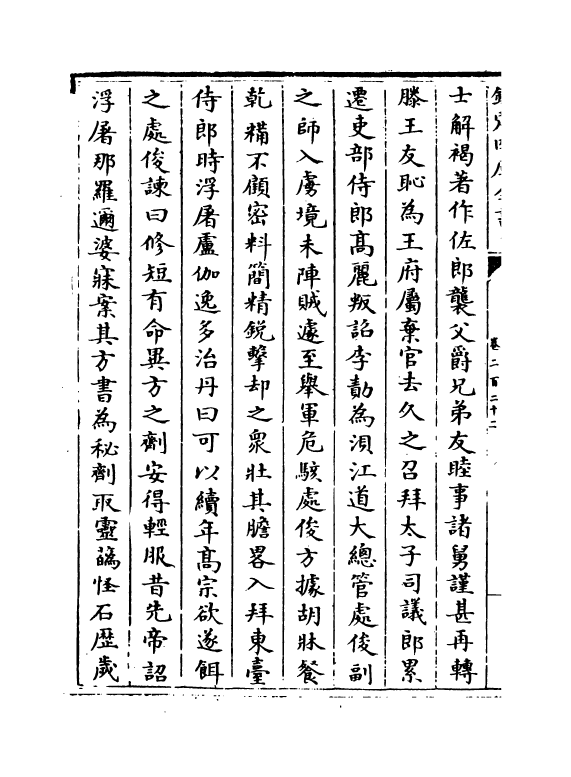 欽定四庫全書
卷二百二十二
士解褐著作佐郎襲父爵兄弟友睦事諸舅謹甚再轉
滕王友恥為王府屬棄官去久之召拜太子司議郎累
遷吏部侍郎髙麗叛詔李勣為浿江道大總管處俊副
之師入虜境未陣賊遽至舉軍危駭處俊方據胡牀餐
乾糒不顧密料簡精鋭擊却之衆壯其膽畧入拜東臺
侍郎時浮屠盧伽逸多治丹曰可以續年髙宗欲遂餌
之處俊諫曰修短有命異方之劑安得輕服昔先帝詔
浮屠那羅邇婆寐案其方書為秘劑取靈蘤怪石歴歲